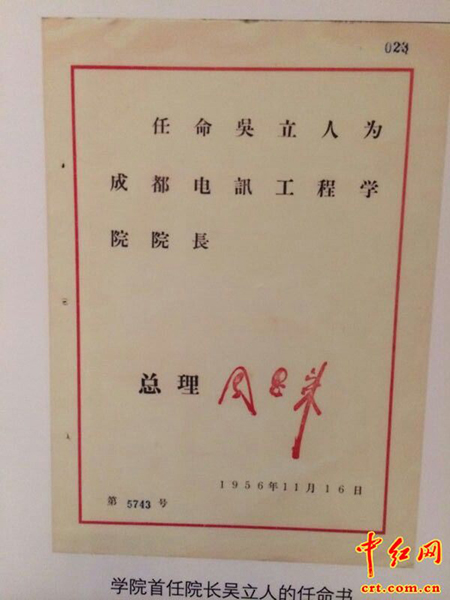 023
任命吳立人为
成都电訊工程学
院院長
总理 周恩来
1956年11月16日
第 5743 号
学院首任院长吴立人的任命书
中红网
crt.com.cn